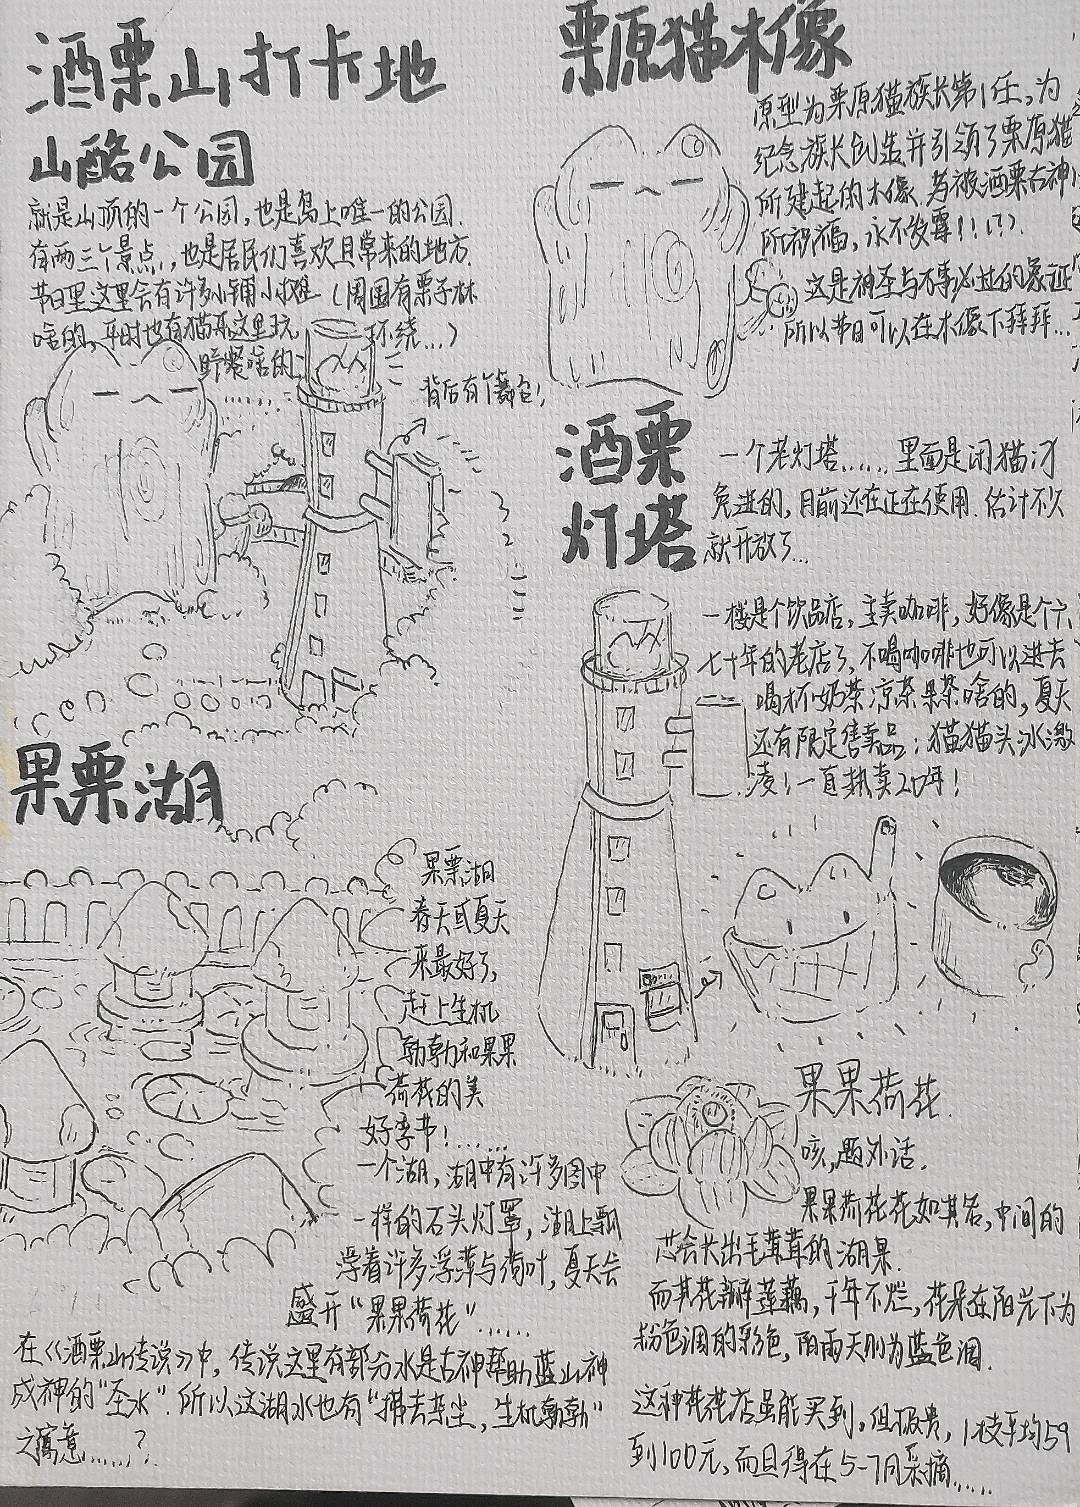 酒栗山打卡地
山酪公园
就是山顶的一个公园,也是岛上唯一的公园.
有两三个景点,也是居民们喜欢且常来的地方.
节日里这里会有许多小铺小摊(周围有栗子林
啥的,平时也有猫再这里玩, 环绕...)
野餐啥的:
背后有个翻包!
栗原猫木像
原型为栗原猫族长第1任,为
纪念族长创造并引领了栗原猫
所建起的木像.为被酒栗古神
所祝福,永不发霉!!!??
这是神圣与万事必过的象征
所以节日可以在木像下拜拜...
酒栗
灯塔
一个老灯塔......里面是闲猫才
免进的,目前还在正在使用.估计不久
就开放了...
一楼是个饮品店,主卖咖啡,好像是个六
七十年的老店了,不喝咖啡也可以进去
喝杯奶茶凉茶果茶啥的,夏天
还有限定售卖品:猫猫头冰激
凌!一直热卖20年!
果栗湖
果栗湖
春天或夏天
来最好了,
赶上生机
勃勃和果果
荷花的美
好季节!......
一个湖,湖中有许多图中
一样的石头灯罩,湖上飘
浮着许多浮萍与荷叶,夏天会
盛开“果果荷花”......
在《酒栗山传说》中,传说这里有部分水是古神帮助蓝山神
成神的“圣水”.所以这湖水也有“拂去杂尘,生机勃勃”
之寓意......?
果果荷花.
咳,题外话.
果果荷花花如其名,中间的
芯会长出毛茸茸的湖果.
而其花瓣莲藕,千年不烂,花朵在阳光下为
粉色调的彩色,阴雨天则为蓝色调.
这种花花店虽能买到,但极贵,1枝平均59
到100元,而且得在5-7月采摘.....